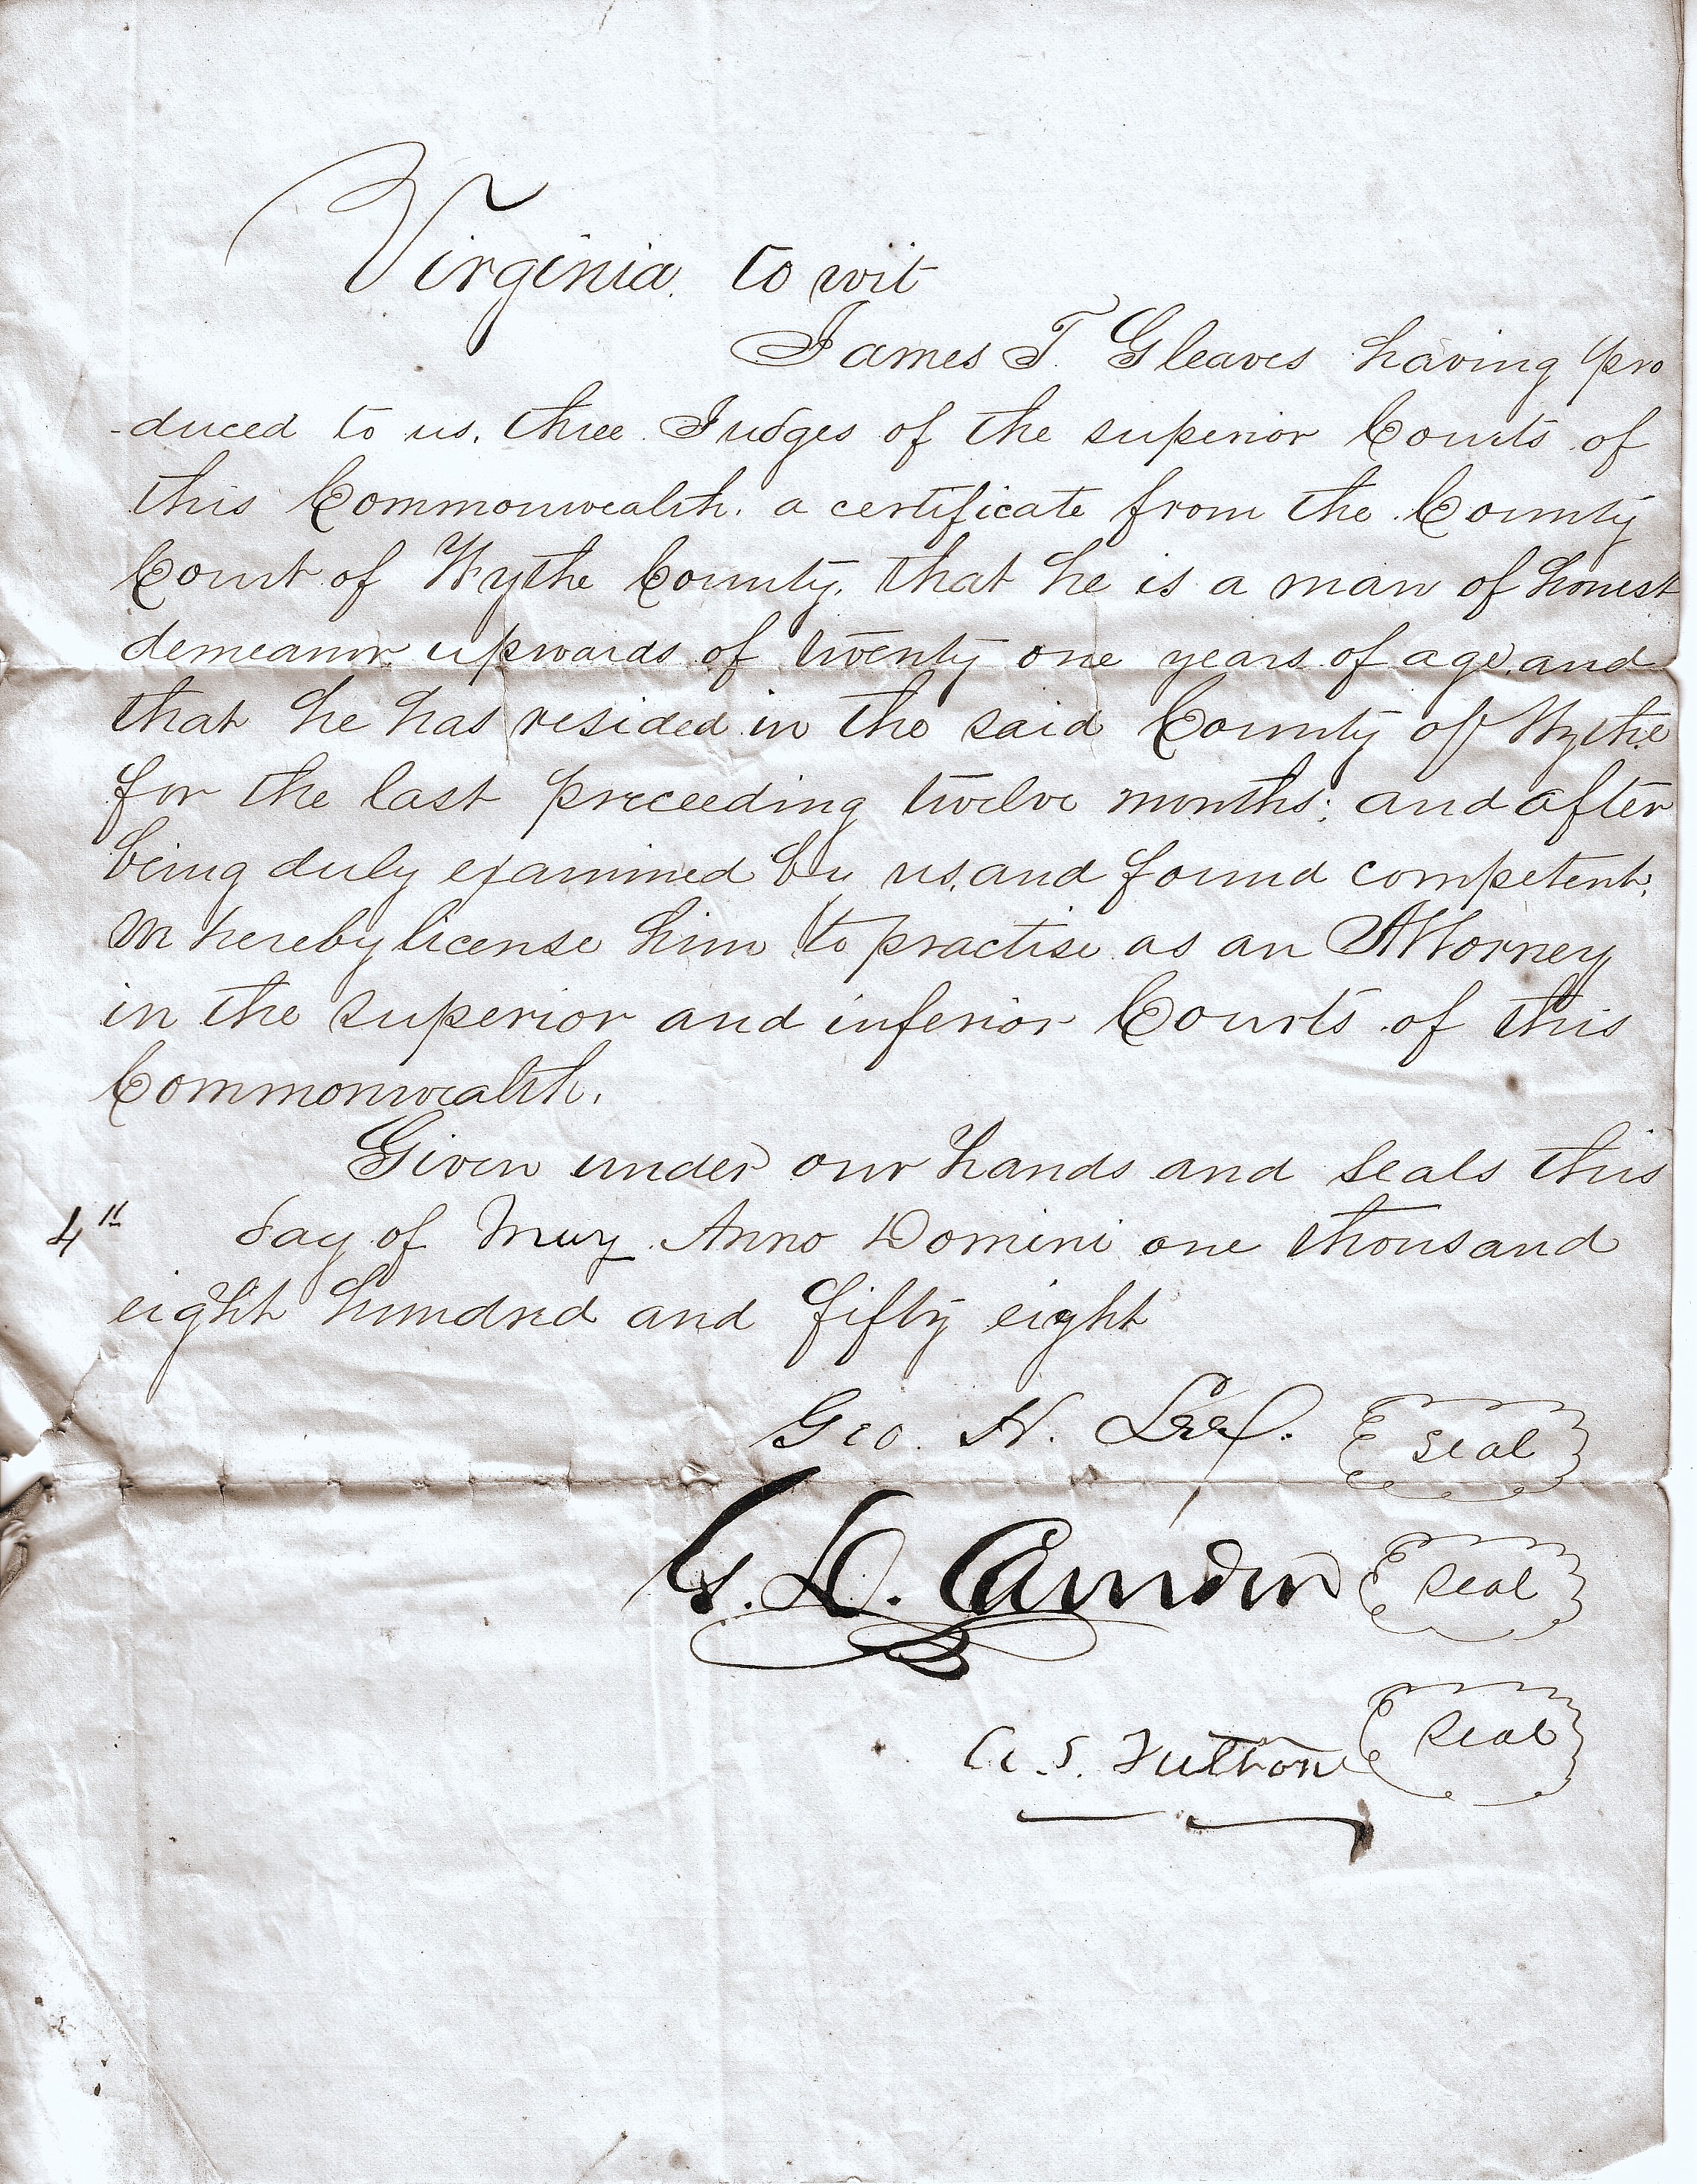 Virginia. to wit
James T. Gleaves having pro
-duced to us, three Judges of the superior Courts of
this Commonwealth, a certificate from the County
Court of Wythe County, that he is a man of honest
demeanor upwards of twenty one years of age, and
that he has resided in the said County of Wythe
for the last preceeding twelve months; and after
being duly examined by us, and found competent,
We hereby license him to practise as an Attorney
in the superior and inferior Courts of this
Commonwealth.
Given under our hands and seals this
4th day of May Anno Domini one thousand
eight hundred and fifty eight
Geo. H. Lee. Seal
G. D. Camden Seal
A. S. Fulton Seal